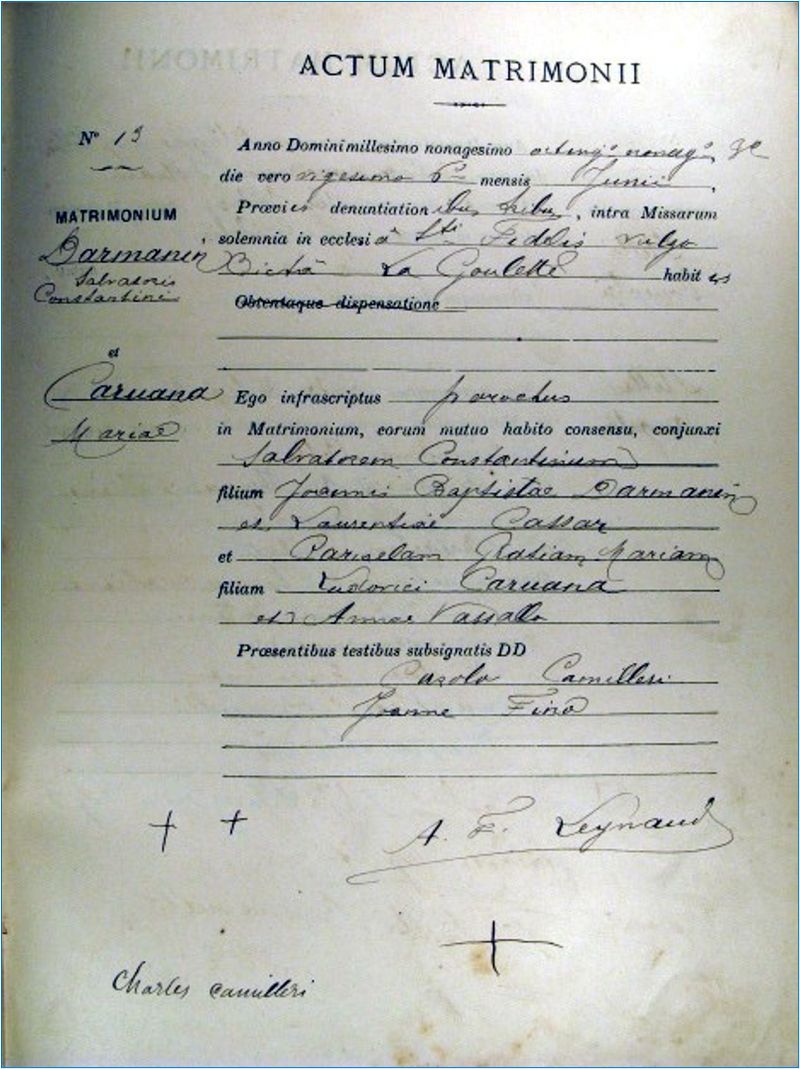 ACTUM MATRIMONII
Nº 13
Anno Domini millesimo nonagesimo octing° nonag°
die vero vigesimo 6ᵃ mensis Junii,
MATRIMONIUM
Prœviis denuntiationibus tribus, intra Missarum
Darmanin
solemnia in ecclesiâ Sti Fidelis vulgo
Salvatoris
La Goulette habites
Constantini
Obtentaque dispensatione
et
Caruana
Ego infrascriptus parochus
Mariae
in Matrimonium, eorum mutuo habito consensu, conjunxi
Salvatorem Constantinum
filium Joannis Baptistae Darmanin
et Laurentiae Cassar
et Gratiam Mariam
filiam Ludovici Caruana
et Annae Vassallo
Prœsentibus testibus subsignatis DD
Carolo Camilleri
Joanne Fino
A. F. Leynaud
Charles Camilleri